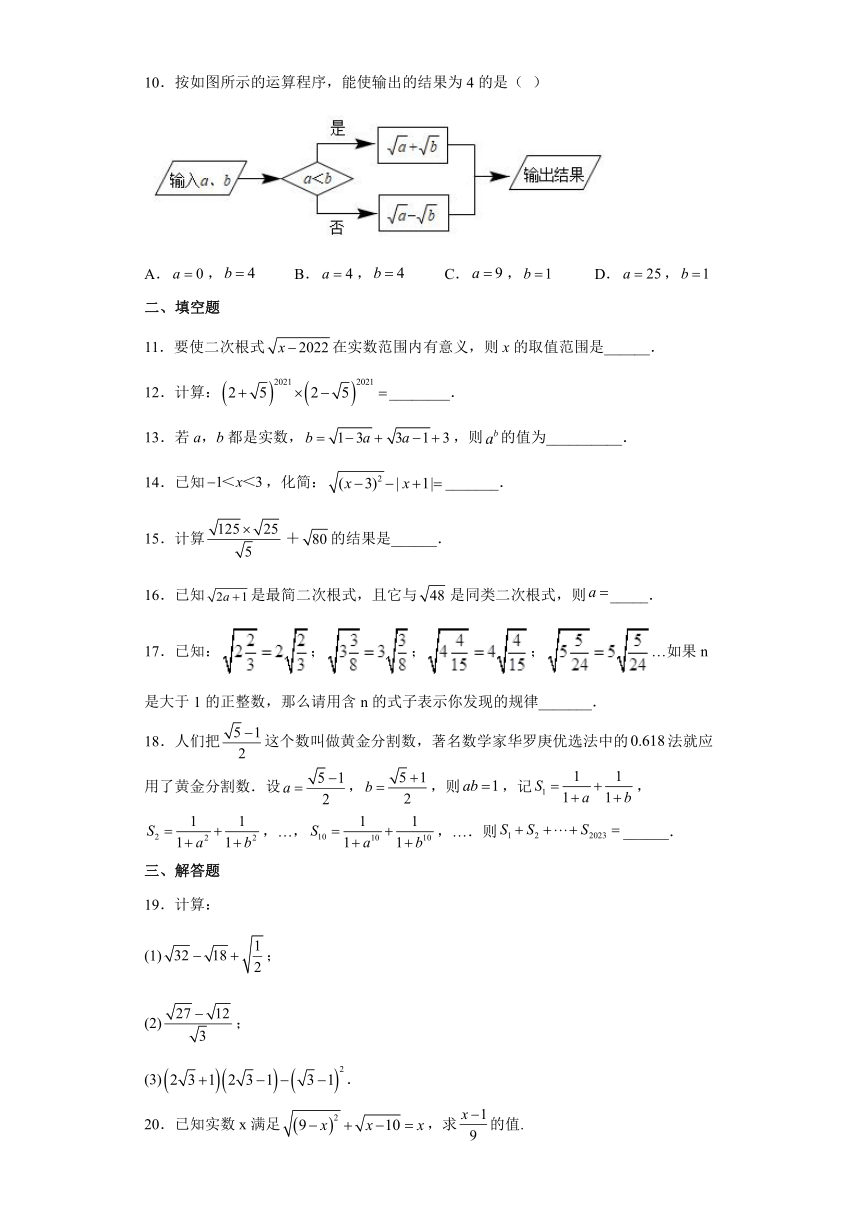 10．按如图所示的运算程序，能使输出的结果为 4 的是（ ）
是
√a+√b
输入a、b
a<b
输出结果
√a−√b
否
A． a = 0 ，b = 4 B． a = 4 ，b = 4 C． a = 9 ，b = 1 D． a = 25 ，b = 1
二、填空题
11．要使二次根式 √(x−2022) 在实数范围内有意义，则 x 的取值范围是______．
12．计算：(2+√5)^2021 × (2−√5)^2021 =________．
13．若 a，b 都是实数，b = √(1−3a) + √(3a−1) + 3 ，则 a^b 的值为__________．
14．已知 −1<x<3 ，化简：√((x−3)²) − | x +1|= _______．
15．计算 (√125 × √25)/√5 ＋ √80 的结果是______．
16．已知 √(2a+1) 是最简二次根式，且它与 √48 是同类二次根式，则 a = _____．
17．已知：√(2 2/3) = 2√(2/3)；√(3 3/8) = 3√(3/8)；√(4 4/15) = 4√(4/15)；√(5 5/24) = 5√(5/24) …如果 n
是大于 1 的正整数，那么请用含 n 的式子表示你发现的规律_______．
18．人们把 (√5−1)/2 这个数叫做黄金分割数，著名数学家华罗庚优选法中的 0.618 法就应
用了黄金分割数．设 a = (√5−1)/2 ，b = (√5+1)/2 ，则 ab = 1 ，记 S₁ = 1/(1+a) + 1/(1+b) ，
S₂ = 1/(1+a²) + 1/(1+b²) ，…，S₁₀ = 1/(1+a¹⁰) + 1/(1+b¹⁰) ，…．则 S₁ + S₂ + ⋯ + S₂₀₂₃ = ______．
三、解答题
19．计算：
(1) √32 − √18 + √(1/2) ；
(2) (√27 − √12)/√3 ；
(3) (2√3+1)(2√3−1) − (√3−1)² ．
20．已知实数 x 满足 √((9−x)²) + √(x−10) = x ，求 (x−1)/9 的值.